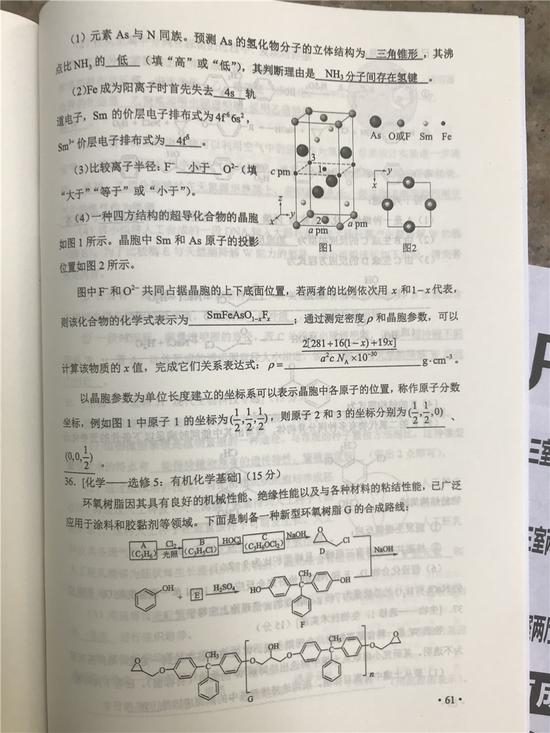 （1）元素 As 与 N 同族。预测 As 的氢化物分子的立体结构为 三角锥形，其沸
点比 NH₃ 的 低 （填“高”或“低”），其判断理由是 NH₃分子间存在氢键 。
（2）Fe 成为阳离子时首先失去 4s 轨
道电子，Sm 的价层电子排布式为 4f⁶6s²，
Sm³⁺ 价层电子排布式为 4f⁵ 。
（3）比较离子半径：F⁻ 小于 O²⁻（填
“大于”“等于”或“小于”）。
（4）一种四方结构的超导化合物的晶胞
如图 1 所示。晶胞中 Sm 和 As 原子的投影
位置如图 2 所示。
As O或F Sm Fe
3
1
c pm
z
y
x
2
a pm
a pm
图1
y
x
图2
图中 F⁻ 和 O²⁻ 共同占据晶胞的上下底面位置，若两者的比例依次用 x 和 1－x 代表，
则该化合物的化学式表示为 SmFeAsO₁₋ₓFₓ ；通过测定密度 ρ 和晶胞参数，可以
计算该物质的 x 值，完成它们关系表达式：ρ＝ 2[281＋16(1－x)＋19x]/(a²c N_A×10⁻³⁰) g·cm⁻³。
以晶胞参数为单位长度建立的坐标系可以表示晶胞中各原子的位置，称作原子分数
坐标，例如图 1 中原子 1 的坐标为(1/2,1/2,1/2)，则原子 2 和 3 的坐标分别为(1/2,1/2,0) 、
(0,0,1/2) 。
36. [化学——选修 5：有机化学基础]（15 分）
环氧树脂因其具有良好的机械性能、绝缘性能以及与各种材料的粘结性能，已广泛
应用于涂料和胶黏剂等领域。下面是制备一种新型环氧树脂 G 的合成路线：
A (C₃H₆) Cl₂ 光照 B (C₃H₅Cl) HOCl C (C₃H₆OCl₂) NaOH O Cl D
NaOH
OH + E H₂SO₄ HO CH₃ C OH F
O O CH₃ C O OH O CH₃ C O O n
G
·61·